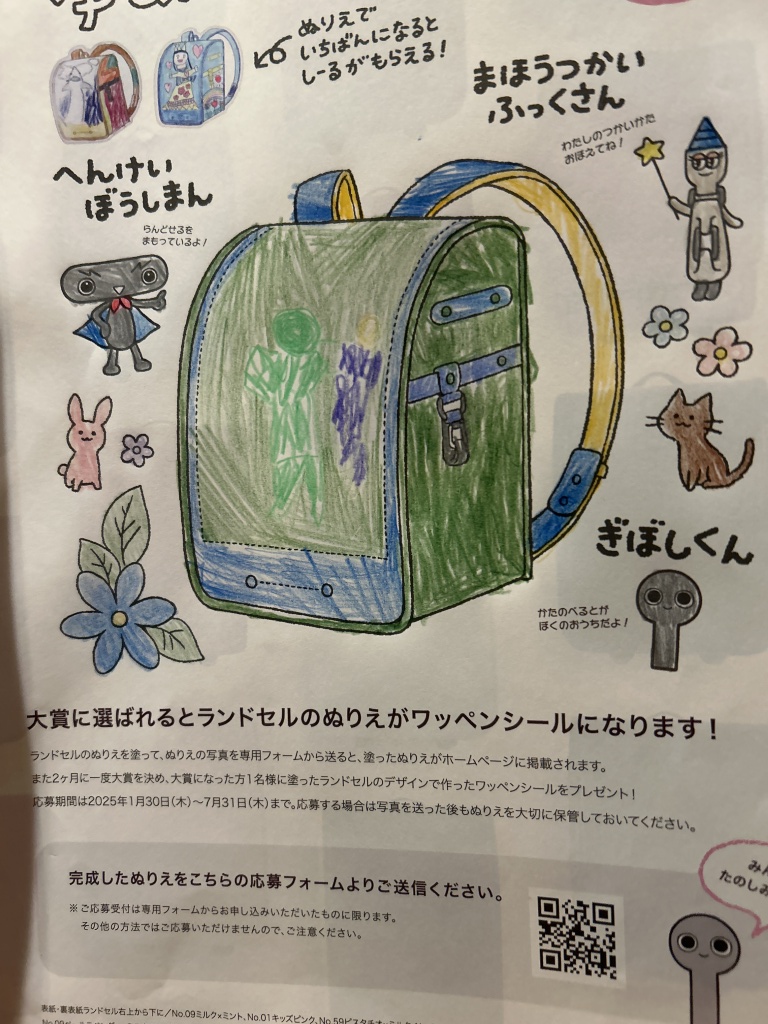 ぬりえで
いちばんになると
しーるがもらえる!
まほうつかい
ふっくさん
わたしのつかいかた
おぼえてね!
へんけい
ぼうしまん
らんどせるを
まもっているよ!
ぎぼしくん
かたのべるとが
ぼくのおうちだよ!
大賞に選ばれるとランドセルのぬりえがワッペンシールになります!
ランドセルのぬりえを塗って、ぬりえの写真を専用フォームから送ると、塗ったぬりえがホームページに掲載されます。
また2ヶ月に一度大賞を決め、大賞になった方1名様に塗ったランドセルのデザインで作ったワッペンシールをプレゼント!
応募期間は2025年1月30日(木)〜7月31日(木)まで。応募する場合は写真を送った後もぬりえを大切に保管しておいてください。
完成したぬりえをこちらの応募フォームよりご送信ください。
※ご応募受付は専用フォームからお申し込みいただいたものに限ります。
その他の方法ではご応募いただけませんので、ご注意ください。
みん
たのしみ
表紙・裏表紙ランドセル右上から下に/No.09ミルク×ミント、No.01キッズピンク、No.59ピスタチオ